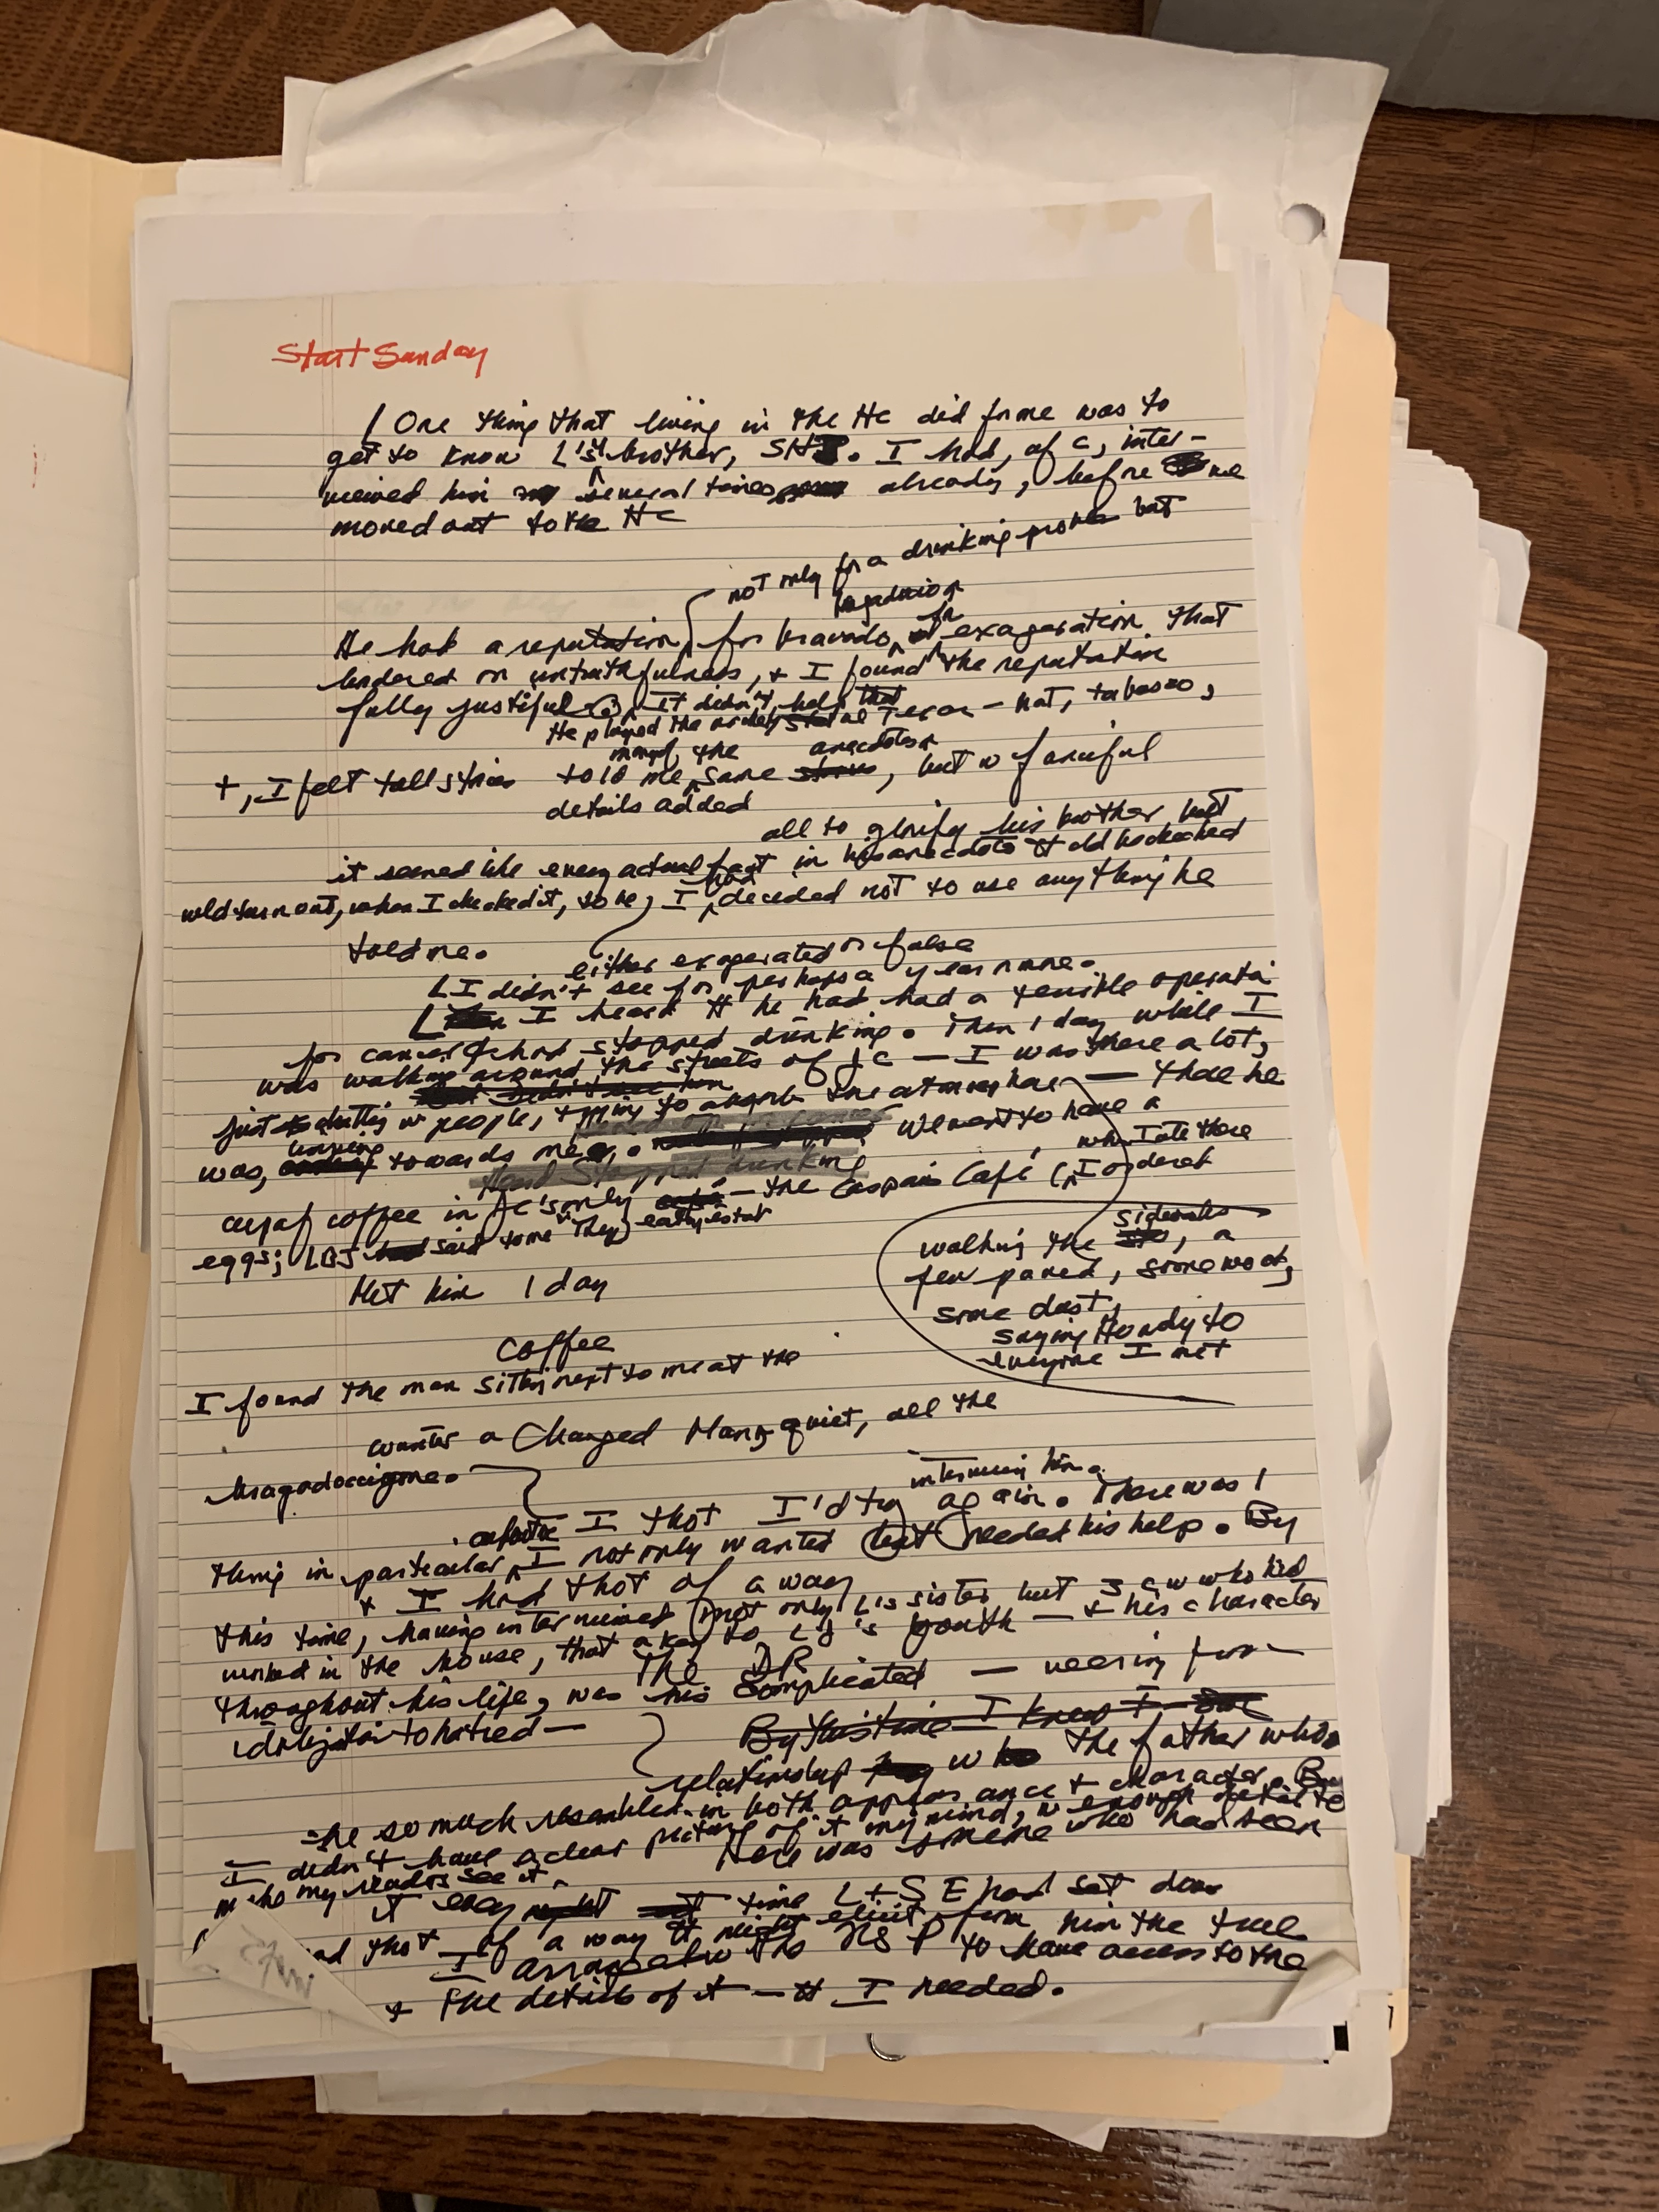 Start Sunday
One thing that living in the HC did for me was to
get to know L's brother, SHJ. I had, of c, inter-
viewed him several times already, before we
moved out to the HC
not only for a drinking problem but
He had a reputation for bravado, for exageration that
bordered on untruthfulness, + I found the reputation
fully justified It didn't help that
He played the Texan - hat, tabasco,
many of the anecdotes
+, I felt tall stories told me same stories, but w fanciful
details added
all to glorify his brother but
it seemed like every actual fact in his anecdotes
wld turn out, when I checked it, to be, I had decided not to use anything he
told me.
either exagerated or false
I didn't see for perhaps a year or more.
I heard tt he had had a terrible operatn
for cancer & had stopped drinking. Then 1 day while I
was walking around the streets of JC — I was there a lot,
just chatting w people, trying to absorb the atmosphere — there he
was, towards me. We went to have a
Stopped drinking
when I ate there
cup of coffee in JC's only — the Caspari Café ( I ordered
eggs; LBJ had said to me They
sidewalks
walking the , a
few paved, some wood,
some dust,
saying Howdy to
everyone I met
Met him 1 day
coffee
I found the man sitting next to me at the
counter a Changed Man, quiet, all the
bragadoccio gone.
interviewing him.
I thot I'd try again. There was 1
thing in particular, I not only wanted but needed his help. By
+ I had thot of a way
this time, having interviewed not only L's sister but 3 who had
worked in the house, that a key to LJ's youth — + his character
throughout his life, was his complicated — veering from
idolization to hatred —
By this time I knew I
relationship w the father who
he so much resembled in both appearance + character. But
I didn't have a clear picture of it my mind, w enough detail to
make my readers see it.
Here was someone who had been
it every night time L + SE had sat down
had thot of a way tt might elicit from him the true
I arranged w the NSP to have access to the
+ the details of it — tt I needed.